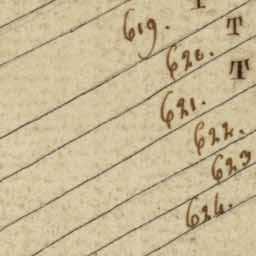 T
619.
T
620.
T
621.
622.
623
624.